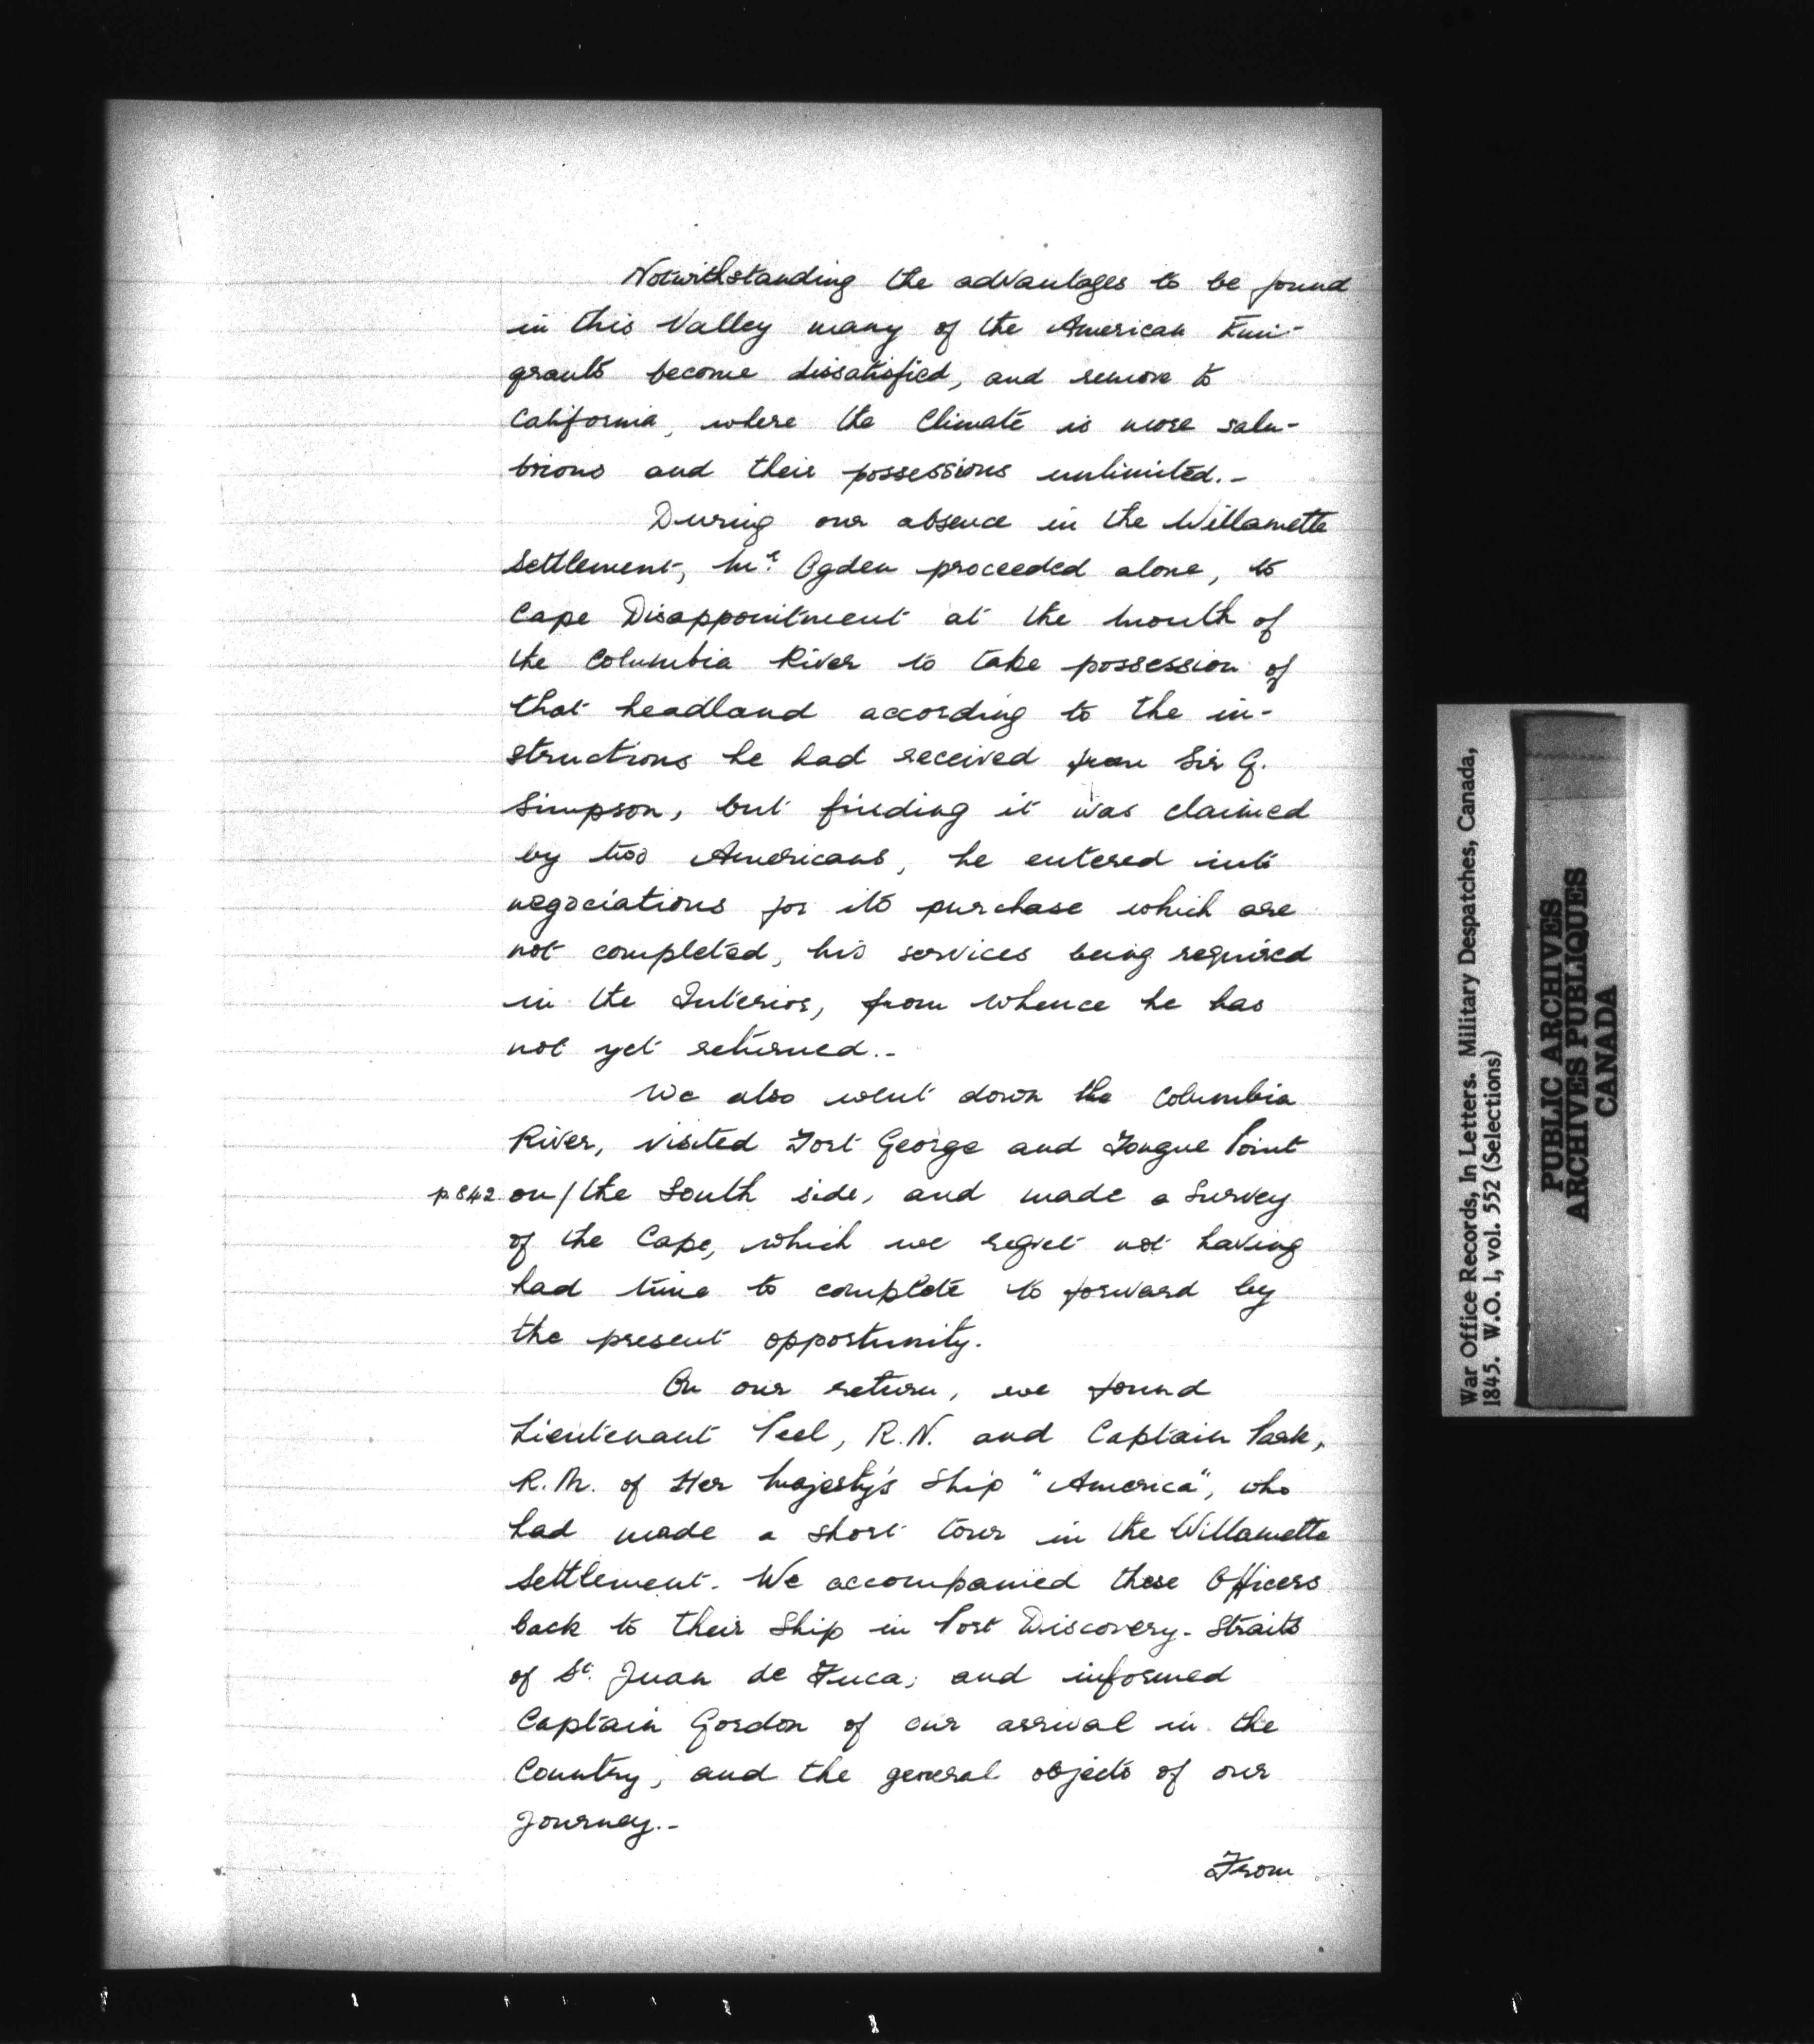 Notwithstanding the advantages to be found
in this Valley many of the American Emi-
grants become dissatisfied, and remove to
California, where the Climate is more salu-
brious and their possessions unlimited.-
During our absence in the Willamette
Settlement, Mr. Ogden proceeded alone, to
Cape Disappointment at the mouth of
the Columbia River to take possession of
that headland according to the in-
structions he had received from Sir G.
Simpson, but finding it was claimed
by two Americans, he entered into
negociations for its purchase which are
not completed, his services being required
in the Interior, from whence he has
not yet returned.-
We also went down the Columbia
River, visited Fort George and Tongue Point
p.842 on/the South side, and made a Survey
of the Cape, which we regret not having
had time to complete to forward by
the present opportunity.
On our return, we found
Lieutenant Peel, R.N. and Captain Park,
R.M. of Her Majesty's Ship "America", who
had made a short tour in the Willamette
Settlement. We accompanied these Officers
back to their Ship in Port Discovery - Straits
of St. Juan de Fuca; and informed
Captain Gordon of our arrival in the
Country, and the general objects of our
Journey.-
From
War Office Records, In Letters. Military Despatches, Canada,
1845. W.O. 1, vol. 552 (Selections)
PUBLIC ARCHIVES
ARCHIVES PUBLIQUES
CANADA